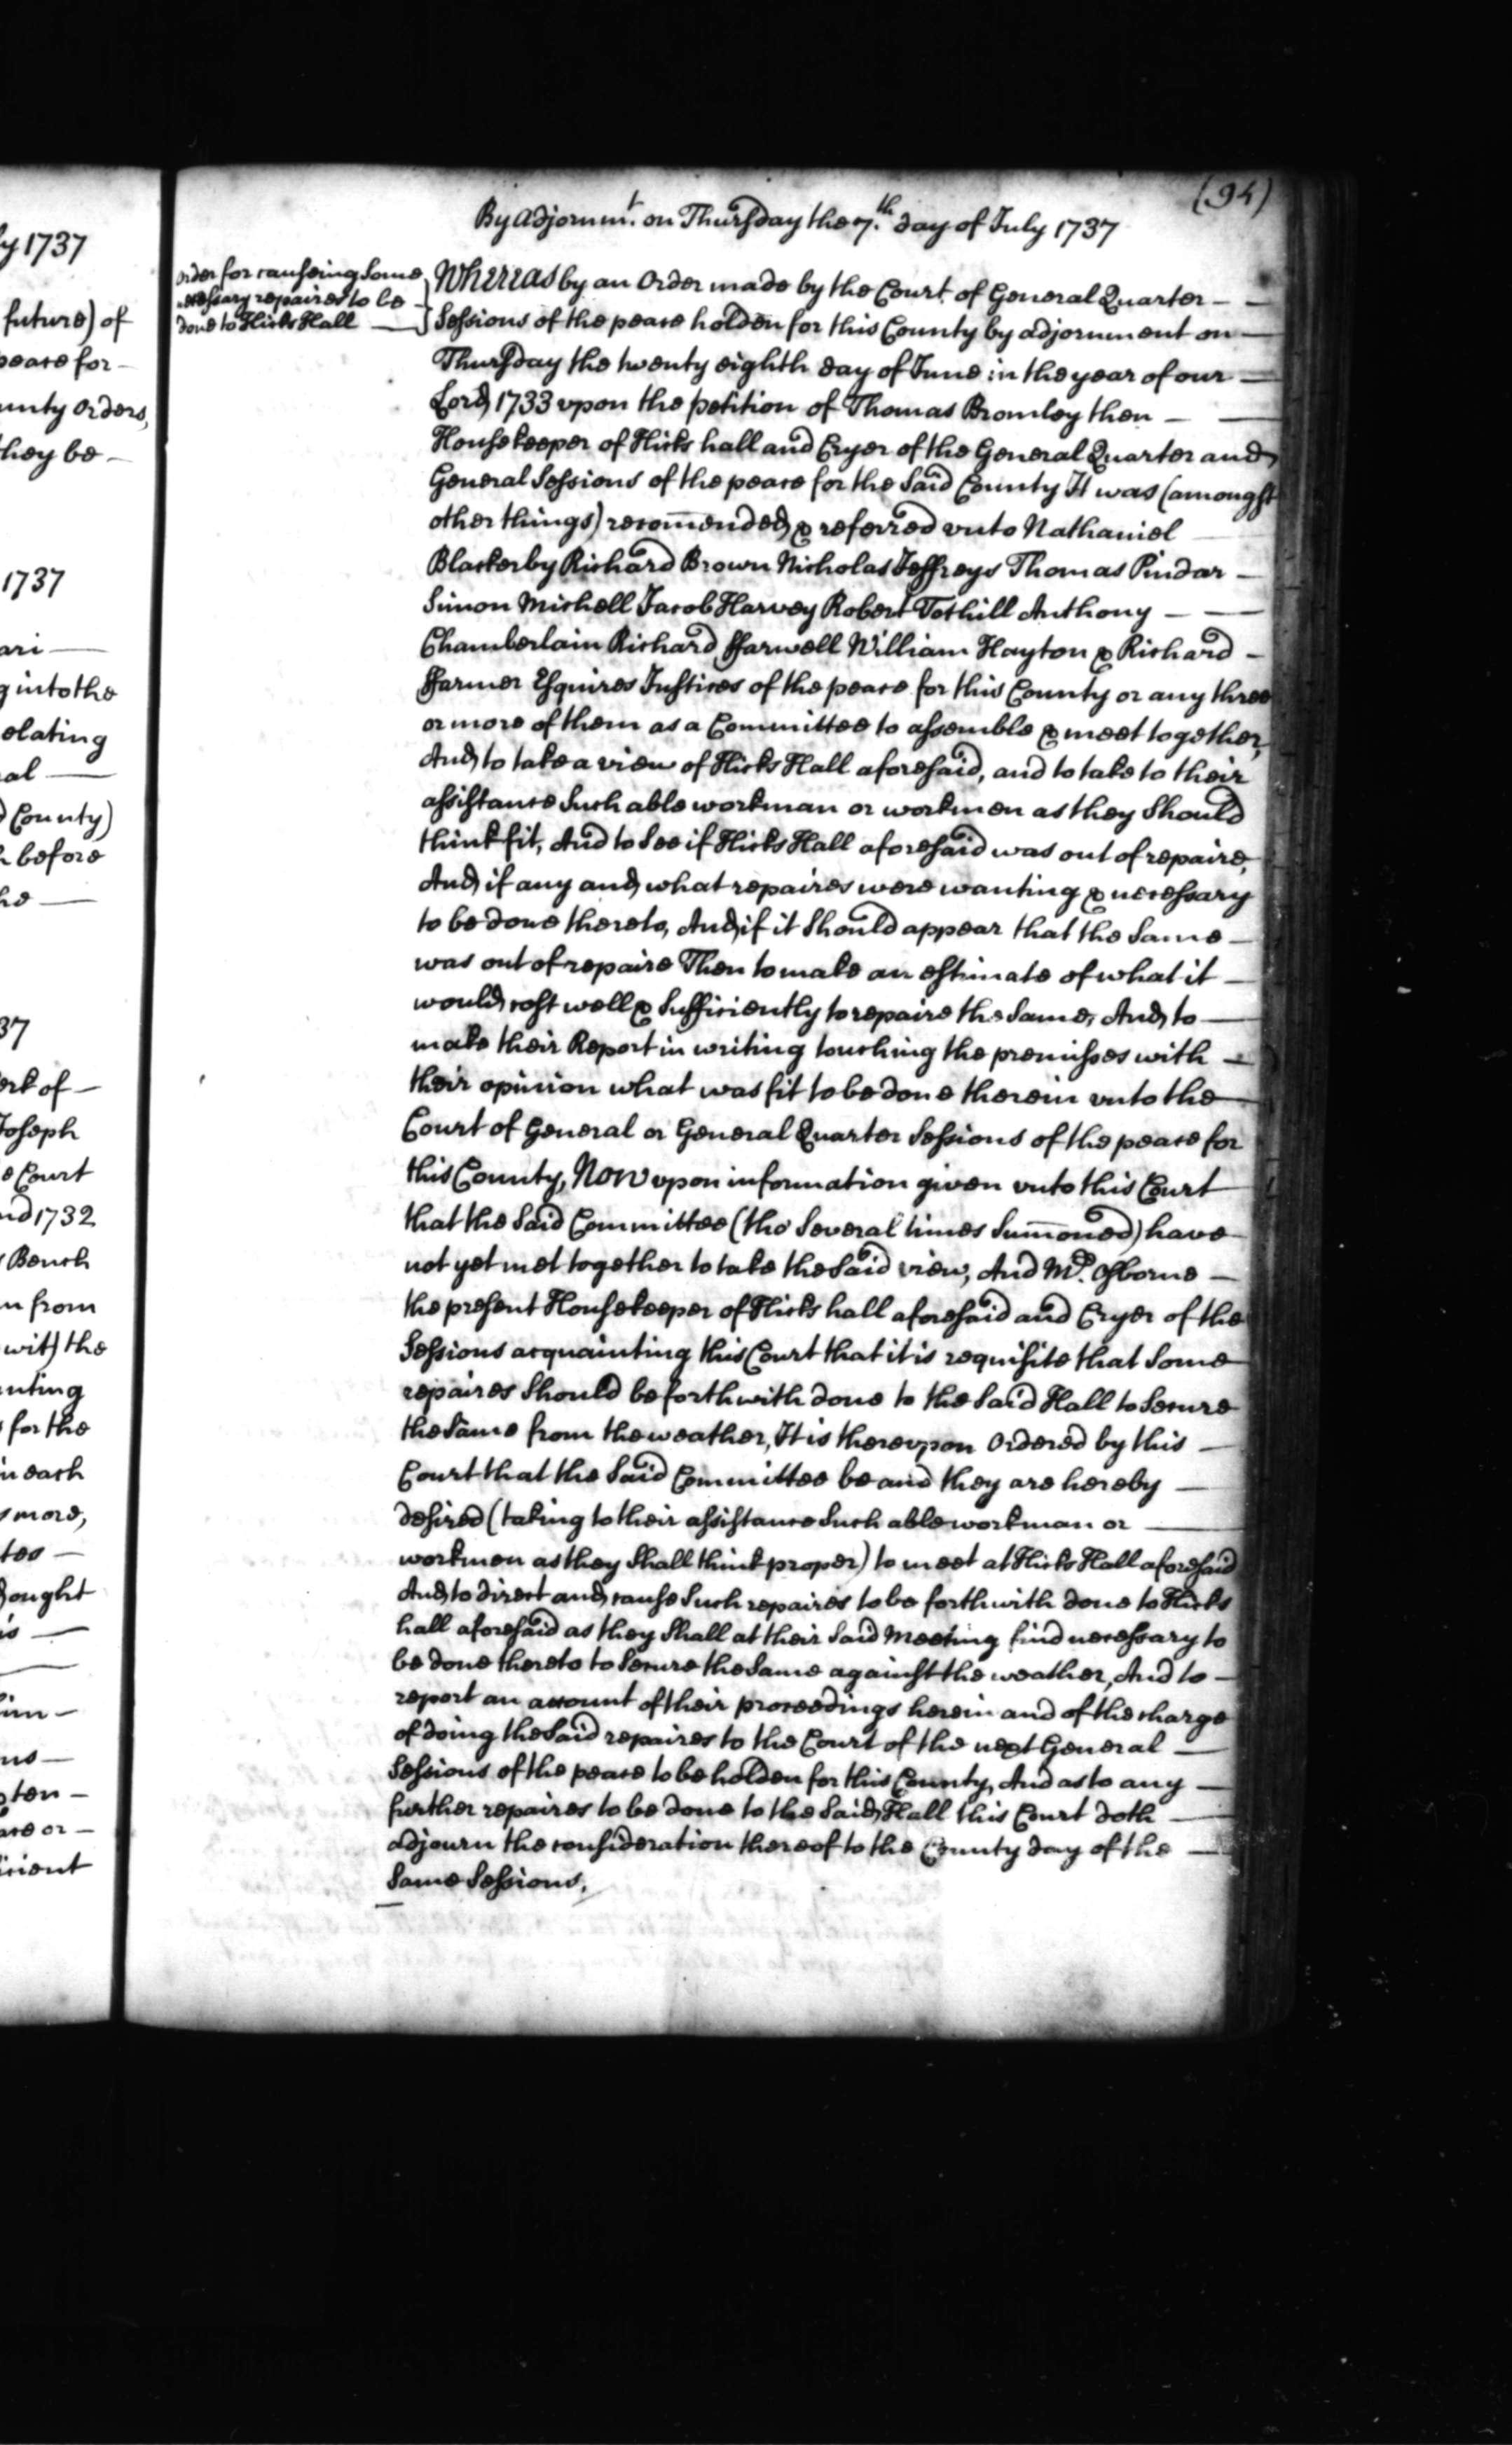 y 1737
future) of
peace for
unty Orders,
they be
1737
ari
g into the
elating
al
d County)
h before
he
37
erk of
Joseph
e Court
nd 1732
s Bench
n from
wit) the
nting
s for the
in each
s more,
tes
ought
is
ten
ace or
icient
(94)
By Adjornmt. on Thursday the 7th. day of July 1737
Order for causeing Some
necessary repaires to be
done to Hicks Hall
Whereas by an Order made by the Court of General Quarter
Sessions of the peace holden for this County by adjornment on
Thursday the twenty eighth day of June in the year of our
Lord 1733 vpon the petition of Thomas Bromley then
Housekeeper of Hicks hall and Cryer of the General Quarter and
General Sessions of the peace for the Said County It was (amongst
other things) recom̄ended & referred vnto Nathaniel
Blackerby Richard Brown Nicholas Jeffreys Thomas Pindar
Simon Michell Jacob Harvey Robert Tothill Anthony
Chamberlain Richard ffarwell William Hayton & Richard
ffarmer Esquires Justices of the peace for this County or any three
or more of them as a Committee to assemble & meet together,
And to take a view of Hicks Hall aforesaid, and to take to their
assistance Such able workman or workmen as they Should
think fit, And to See if Hicks Hall aforesaid was out of repaire,
And if any and what repaires were wanting & necessary
to be done thereto, And if it Should appear that the Same
was out of repaire Then to make an estimate of what it
would cost well & Sufficiently to repaire the Same, And to
make their Report in writing touching the premisses with
their opinion what was fit to be done therein vnto the
Court of General or General Quarter Sessions of the peace for
this County, Now vpon information given vnto this Court
that the Said Committee (tho' Several times Sum̄oned) have
not yet met together to take the Said view, And Mr. Osborne
the present Housekeeper of Hicks hall aforesaid and Cryer of the
Sessions acquainting this Court that it is requisite that Some
repaires Should be forthwith done to the Said Hall to Secure
the Same from the weather, It is therevpon Ordered by this
Court that the Said Committee be and they are hereby
desired (taking to their assistance Such able workman or
workmen as they Shall think proper) to meet at Hicks Hall aforesaid
And to direct and cause Such repaires to be forthwith done to Hicks
hall aforesaid as they Shall at their Said Meeting find necessary to
be done thereto to Secure the Same against the weather, And to
report an account of their proceedings herein and of the charge
of doing the Said repaires to the Court of the next General
Sessions of the peace to be holden for this County, And as to any
further repaires to be done to the Said Hall this Court doth
adjourn the consideration thereof to the County day of the
Same Sessions.